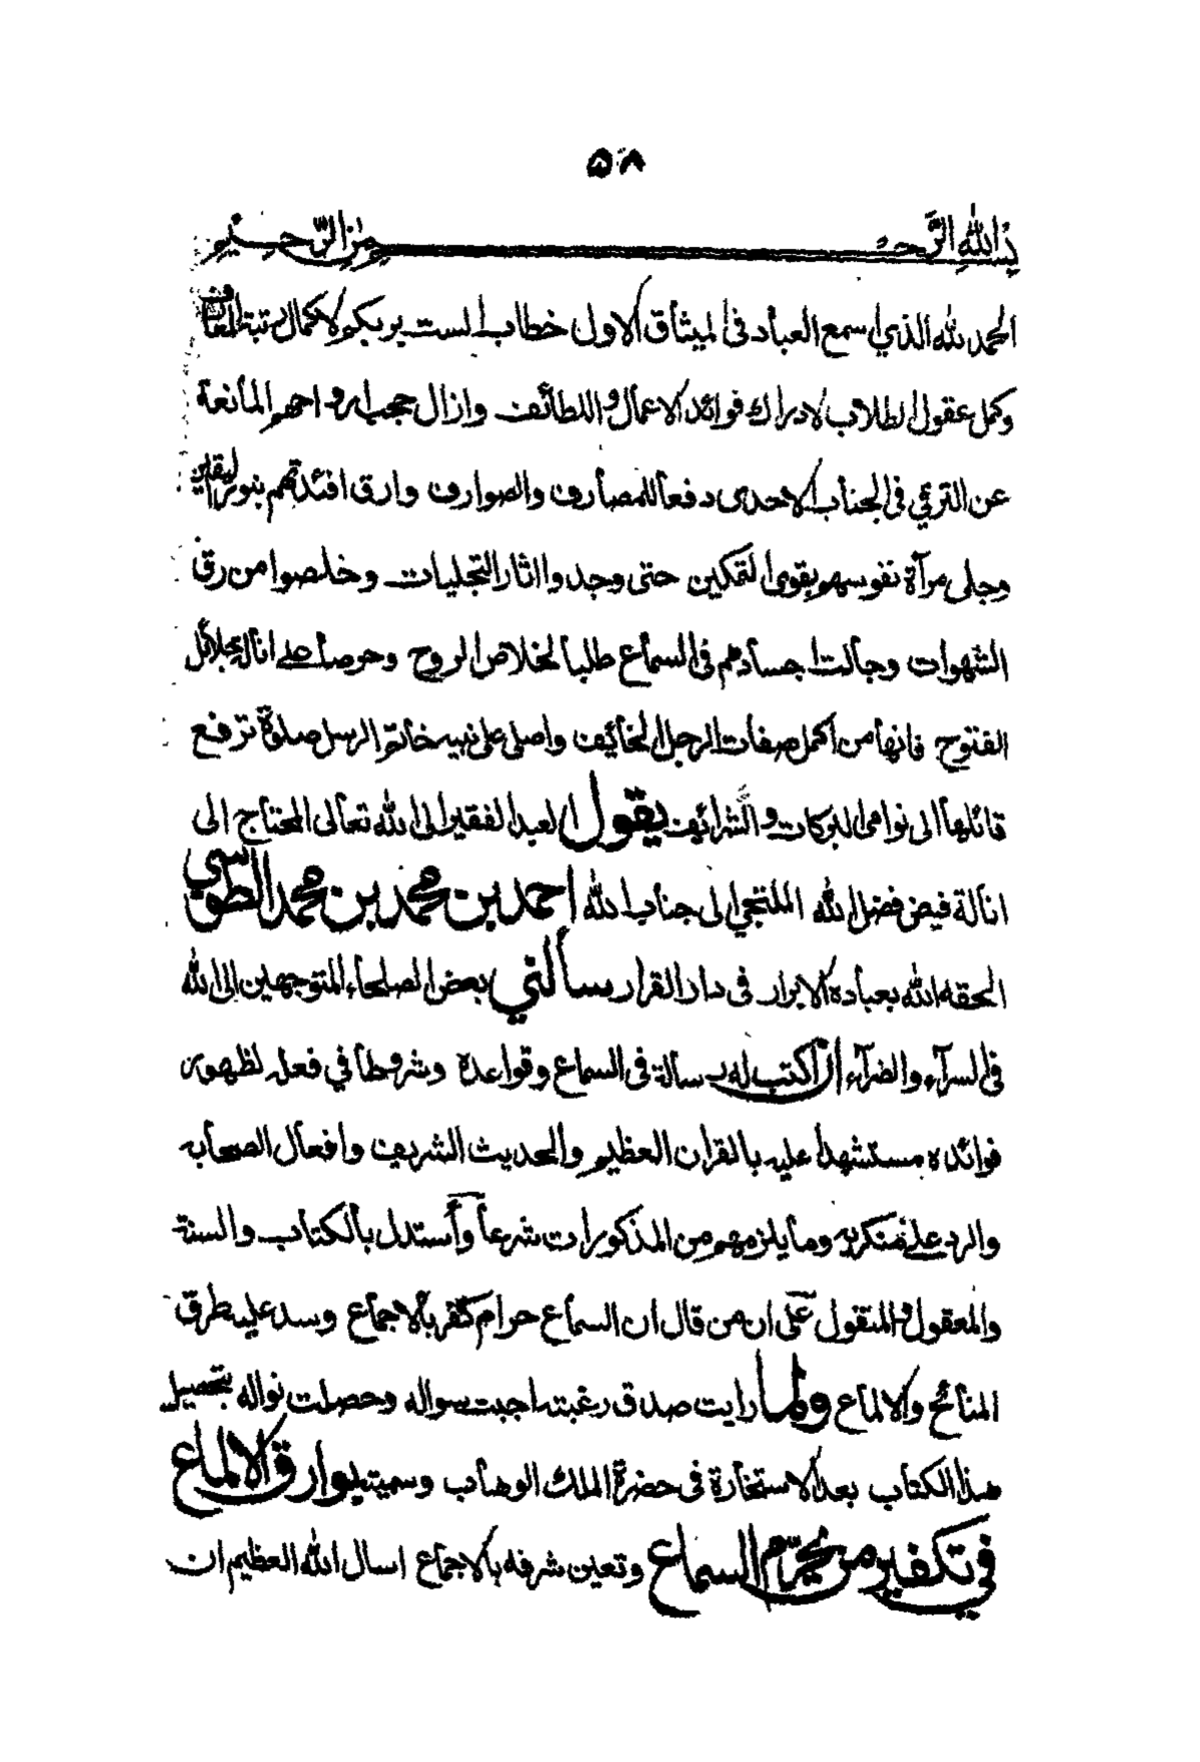 ٥٨
بسم الله الرحمن الرحيم
الحمد لله الذي اسمع العباد فى الميثاق الاول خطاب الست بربكم لاكمال رتبة
وكمل عقول الطلاب لادراك فوائد الاعمال و اللطائف وازال حجب ارواحهم المانعة
عن الترقي فى الجناب الاحدى دفعا للمصارف والصوارف وارق افئدتهم بنور اليقين
وجلى مرآة نفوسهم بقوى التمكين حتى وجدوا اثار التجليات وخلصوا من رق
الشهوات وجالت اجسادهم فى السماع طلبا لخلاص الروح وحرصا على انالة جلائل
الفتوح فانها من اكمل صفات الرجل الخائف واصلى على نبيه خاتم الرسل صلوة ترفع
قائلها الى نوامى البركات و الشرائف يقول العبد الفقير الى الله تعالى المحتاج الى
انالة فيض فضل الله الملتجي الى جناب الله احمد بن محمد بن محمد الطوسي
الحقه الله بعباده الابرار فى دار القرار سألني بعض الصلحاء المتوجهين الى الله
فى السرآء والضرآء ان اكتب له رسالة فى السماع وقواعده وشروطا في فعله لظهور
فوائده مستشهدا عليه بالقران العظيم والحديث الشريف وافعال الصحابه
والرد على منكريه وما يلزمهم من المذكورات شرعا وأستدل بالكتاب والسنة
والمعقول والمنقول على ان من قال ان السماع حرام كفر بالاجماع وسد عليه طرق
المنائح والالماع ولما رايت صدق رغبته اجبت سواله وحصلت نواله بتحصيل
هذا الكتاب بعد الاستخارة فى حضرة الملك الوهاب وسميته بوارق الالماع
في تكفير من يحرّم السماع وتعين شرفه بالاجماع اسال الله العظيم ان